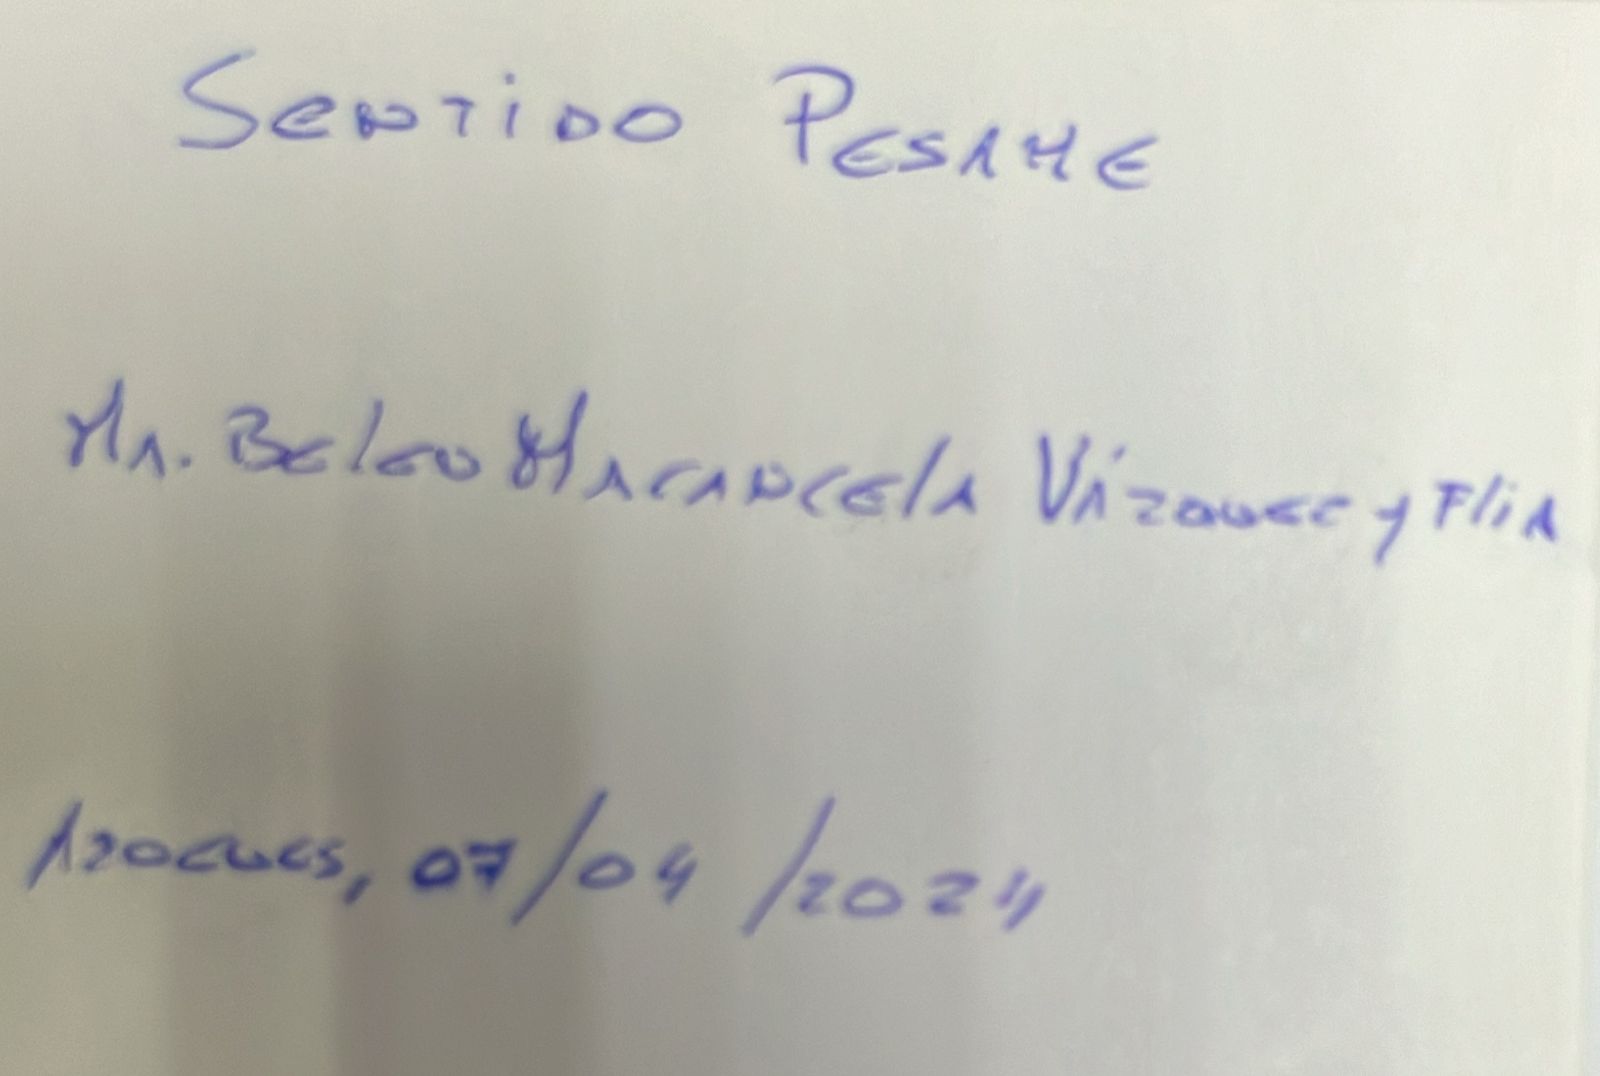 Sentido Pesame
Ma. Belen Macancela Vázquez y Flia
Azogues, 07/04/2024